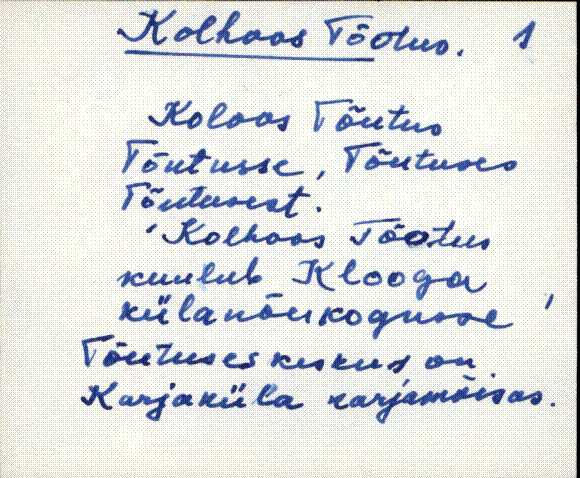 Kolhoos Tõotus. 1
Koloos Tõutus
Tõutusse, Tõutuses
Tõutusest.
'Kolhoos Tõotus
kuulub Klooga
külanõukogusse,
Tõutuses keskus on
Karjaküla karjamõisas.